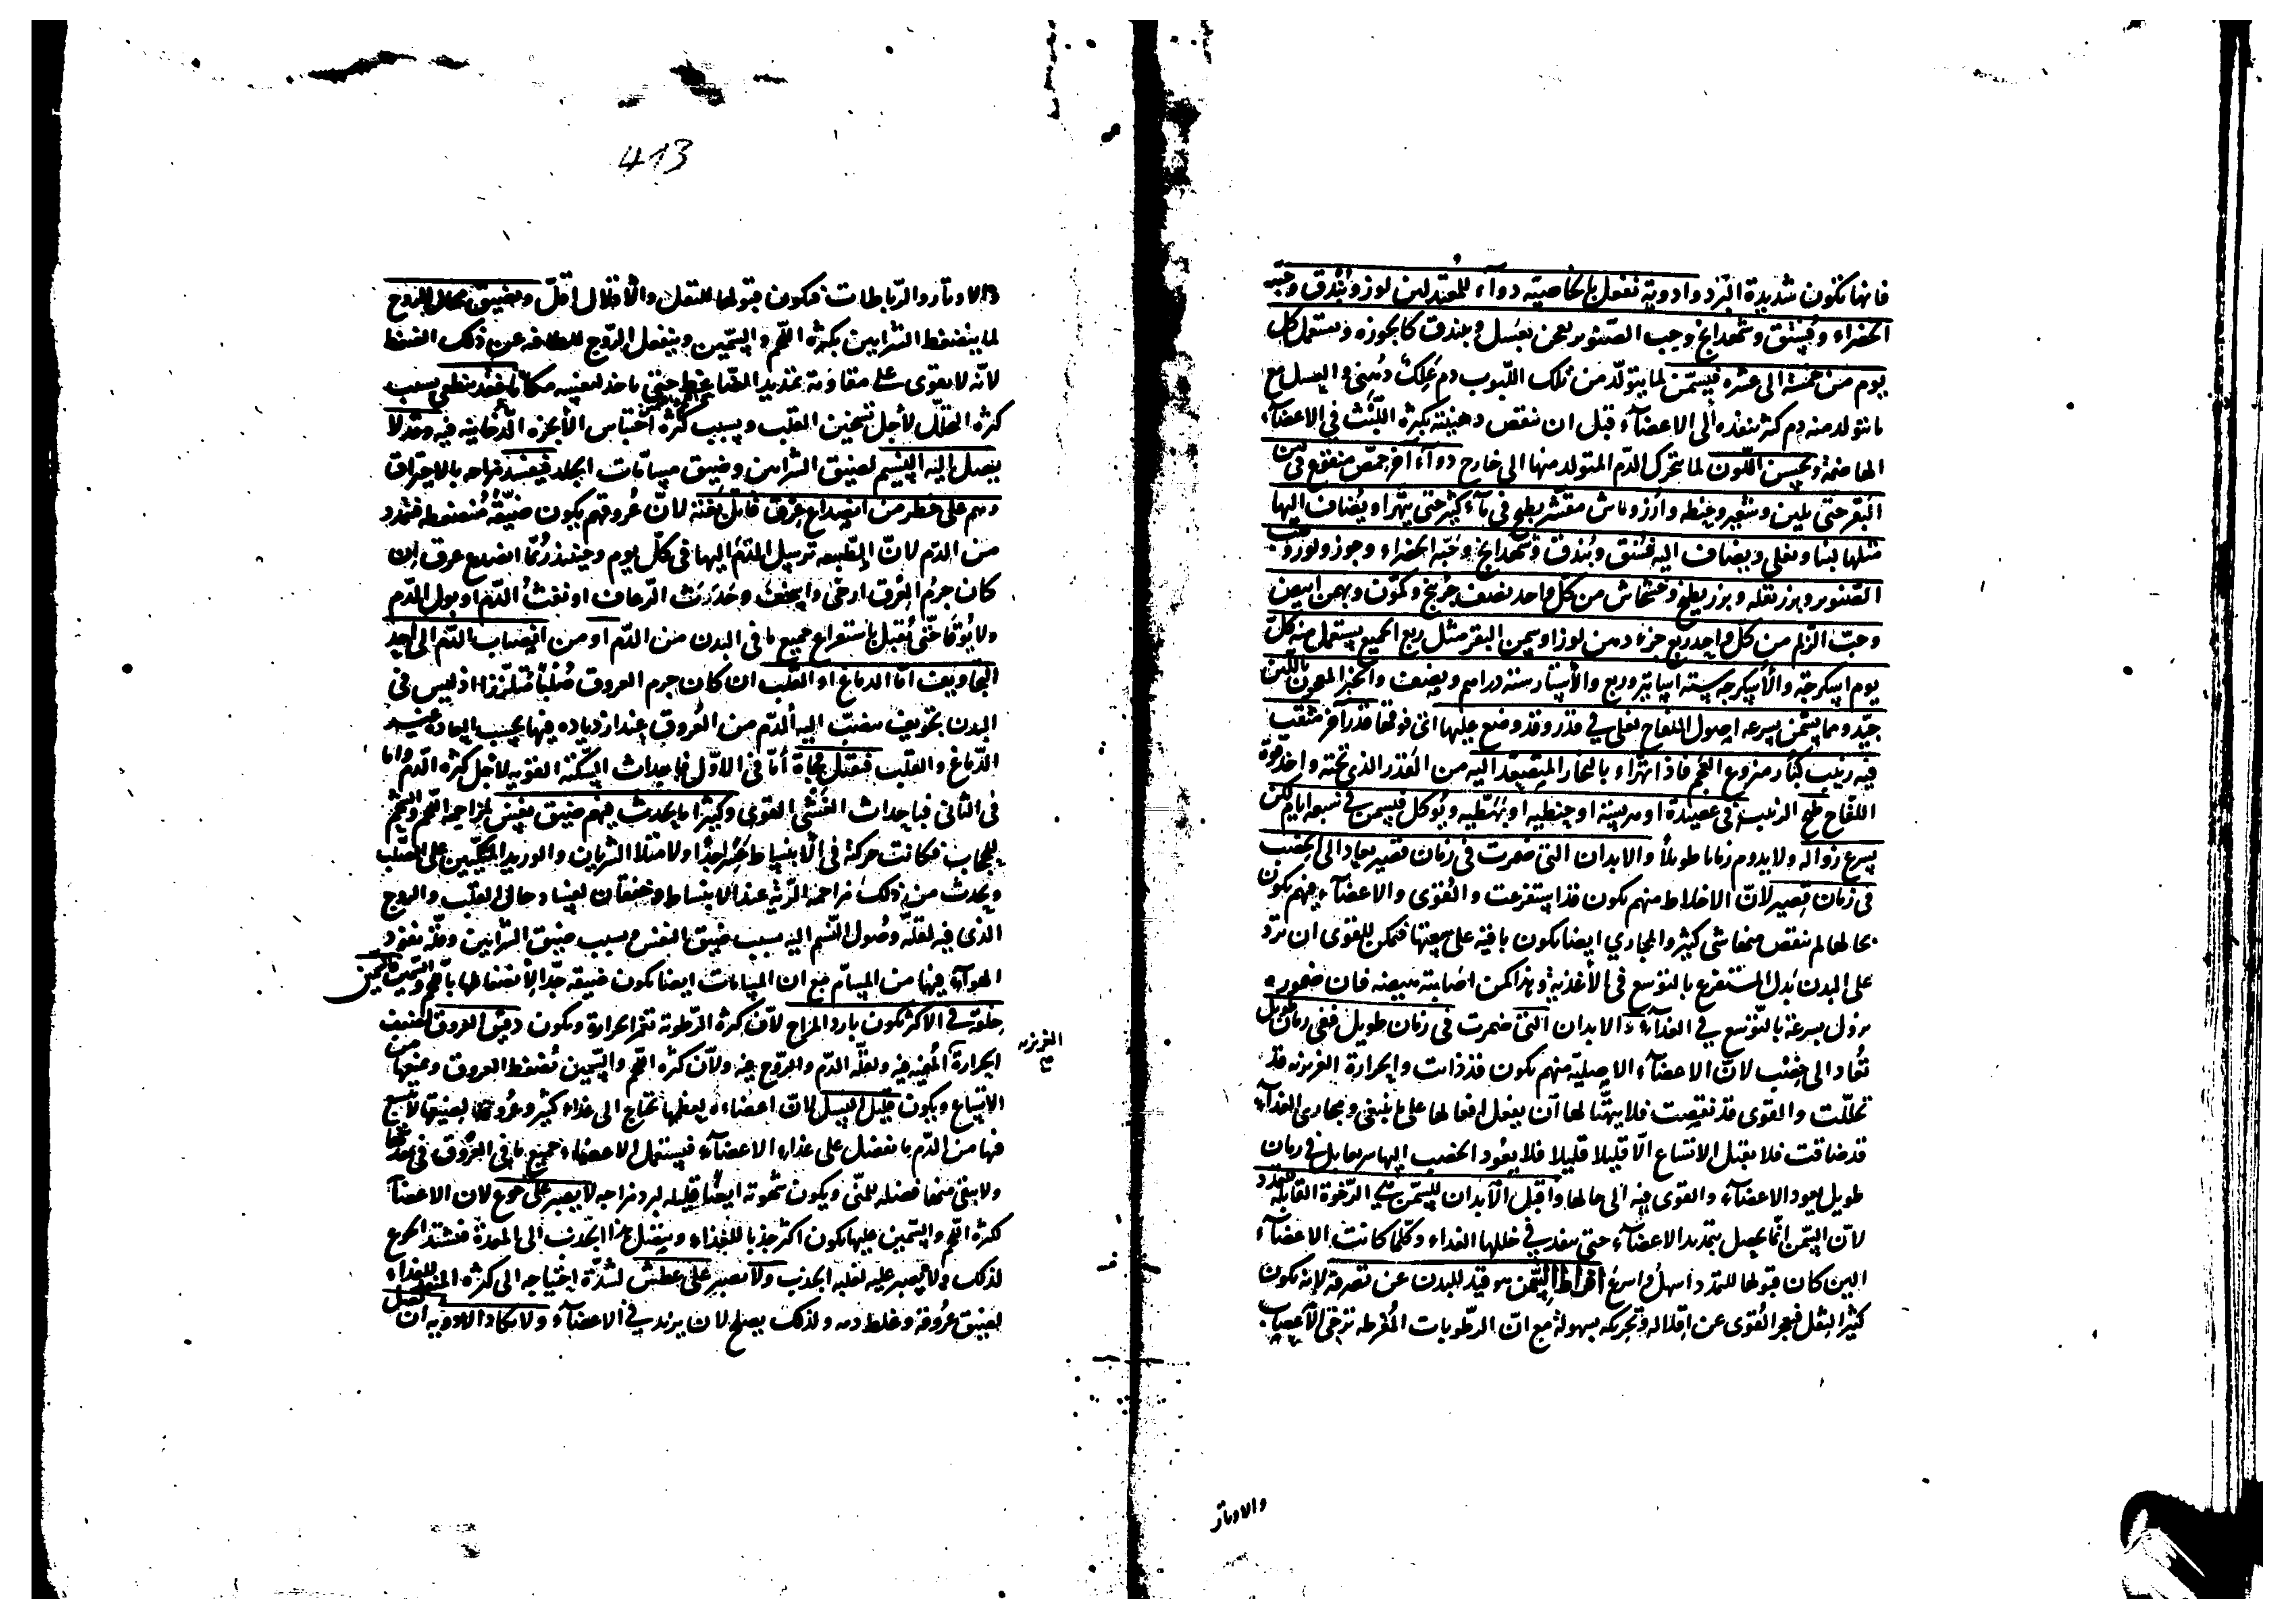 فانها تكون شديدة البرد وادوية تفعل بالخاصية دواء للمعتدلين لوز وبندق وحبة
الخضراء وفستق وشهدانج وحب الصنوبر يعجن بعسل ويبندق كالجوزه ويستعمل كل
يوم من خمسة الى عشره فيسمن لما يتولد من تلك اللبوب دم علك دهنى والعسل مع
ما يتولد منه دم كثر ينفذه الى الاعضاء قبل ان تنقص دهنيته بكثرة اللبث في الاعضاء
الهاضمة ويحسن اللون لما يتحرك الدم المتولد منها الى خارج دواء آخر حمص منقع في لبن
البقر حتى يلين وشعير وحنطه وارز وماش مقشر يطبخ في ماء كثير حتى يتهرا ويضاف اليها
مثلها لبنا ويغلى ويضاف اليه فستق وبندق وشهدانج وحبة الخضراء وجوز ولوز وحب
الصنوبر وبزر بقله وبزر بطيخ وخشخاش من كل واحد نصف جزء بنج وكمون وبهمن ابيض
وحب الزلم من كل واحد ربع جزء دهن لوز او سمن البقر مثل ربع الجميع يستعمل منه كل
يوم اسكرجة والاسكرجه سته اساتير وربع والاستار ستة دراهم ونصف والخبز المعجون باللبن
جيد ومما يسمن بسرعه اصول اللفاح تغلى في قدر وقد وضع عليها اى فوقها قدر آخر مثقب
فيه زبيب كبار منزوع العجم فاذا تهراء بالبخار المتصعد اليه من القدر الذي تحته واخذ قوة
اللفاح طبخ الزبيب في عصيدة او هريسة او حنطيه او بهطيه ويؤكل فيسمن في سبعة ايام لكن
يسرع زواله ولا يدوم زمانا طويلا والابدان التى ضمرت في زمان قصير يعاد الى الخصب
في زمان قصير لان الاخلاط منهم تكون قد استفرغت والقوى والاعضاء منهم تكون
بحالها لم تنقص منها شى كثير والمجارى ايضا تكون باقية على سعتها فتمكن للقوى ان ترد
على البدن بدل المستفرغ بالتوسع في الأغذية
يزول بسرعة بالتوسع في الغذاء والابدان التى ضمرت في زمان طويل ففى زمان طويل
تعاد الى خصب لان الاعضاء الاصلية منهم تكون قد ذابت والحرارة الغريزيه قد
تحللت والقوى قد نقصت فلا يتهيأ لها أن يفعل افعالها على ما ينبغى ومجارى الغذاء
قد ضاقت فلا يقبل الاتساع الا قليلا قليلا فلا يعود الخصب اليها سريعا بل في زمان
طويل يعود الاعضاء والقوى فيه الى حالها واقبل الابدان للسمن هي الرخوة القابلة للتمدد
لان السمن انما يحصل بتمديد الاعضاء حتى ينفذ في خللها الغذاء وكلما كانت الاعضاء
الين كان قبولها للتمدد اسهل واسرع افراط السمن هو قيد للبدن عن تصرفه لانه يكون
كثير الثقل فيعجز القوى عن اقلاله وتحريكه بسهولة مع ان الرطوبات المفرطه ترخى الاعصاب
والاوتار
413
والاوتار والرباطات فيكون قبولها للثقل والاقلال اقل ويضيق مجال الروح
لما ينضغط الشرايين بكثرة اللحم والسمين وينفعل الروح للطافه عن ذلك الضغط
لانه لا يقوى على مقاومة تمديد الضاغط حتى ياخذ لنفسه مكانا فقد ينطفى بسبب
كثرة التحلل لأجل تسخين القلب وبسبب كثرة احتباس الأبخره الدخانيه فيه وقد لا
يصل اليه النسيم لضيق الشرايين وضيق مسامات الجلد فيفسد مزاجه بالاحتراق
وهم على خطر من انصداع عرق قاتل بغتة لان عروقهم يكون ضيقه منضغطه فتمدد
من الدم لان الطبيعه ترسل الدم اليها في كل يوم وحينئذ ربما انصدع عرق ان
كان جرم العرق ارخى واسخف وحدث الرعاف او نفث الدم او بول الدم
ولا يوقا حتى يقبل باستفراغ جميع ما في البدن من الدم او من انصباب الدم الى احد
التجاويف اما الدماغ او القلب ان كان جرم العروق صلبا متلززا اذ ليس في
البدن تجويف ينصب اليه الدم من العروق عند ازدياده فيها بحسب العاده غير
الدماغ والقلب فيقتل فجاة أما في الاول فباحداث السكتة القويه لاجل كثرة الدم واما
في الثانى فباحداث الغشى القوى وكثيرا ما يحدث بهم ضيق نفس لمزاحمة اللحم والشحم
للحجاب فكانت حركة في الانبساط عسرا جدا ولامتلاء الشريان والوريد المتكئين على الصلب
ويحدث من ذلك مزاحمة الرئة عند الانبساط وخفقان لفساد حال القلب والروح
الذى فيه لقلة وصول النسيم اليه بسبب ضيق النفس وبسبب ضيق الشرايين وقلة نفوذ
الهواء فيها من المسام مع ان المسامات ايضا تكون ضيقه جدا لانضغاطها باللحم والسمين والسمين
خلقة في الاكثر يكون بارد المزاج لان كثرة الرطوبة تغمر الحرارة ويكون دقيق العروق لضعف
الغريزيه
الحرارة المنميه فيه ولقلة الدم والروح فيه ولان كثرة اللحم والسمين تضغط العروق ويمنعها من
الاتساع ويكون قليل النسل لان اعضاءه لعظمها تحتاج الى غذاء كثير وعروقها لضيقها لا تسع
فيها من الدم ما يفضل على غذاء الاعضاء فيستعمل الاعضاء جميع ما في العروق في غذائها
ولا يبقى منها فضله للمنى ويكون شهوته ايضا قليله لبرد مزاجه لا يصبر على جوع لان الاعضاء
لكثرة اللحم والسمين عليها يكون اكثر جذبا للغذاء ويتصل هذا الجذب الى المعدة فتشتد الجوع
لذلك ولا يصبر عليه لغلبه الجذب ولا يصبر على عطش لشدة احتياجه الى كثرة المنفذ للغذاء
لضيق عروقه وغلظ دمه ولذلك يصلح لان يزيد في الاعضاء ولا يكاد الادويه ان تصل